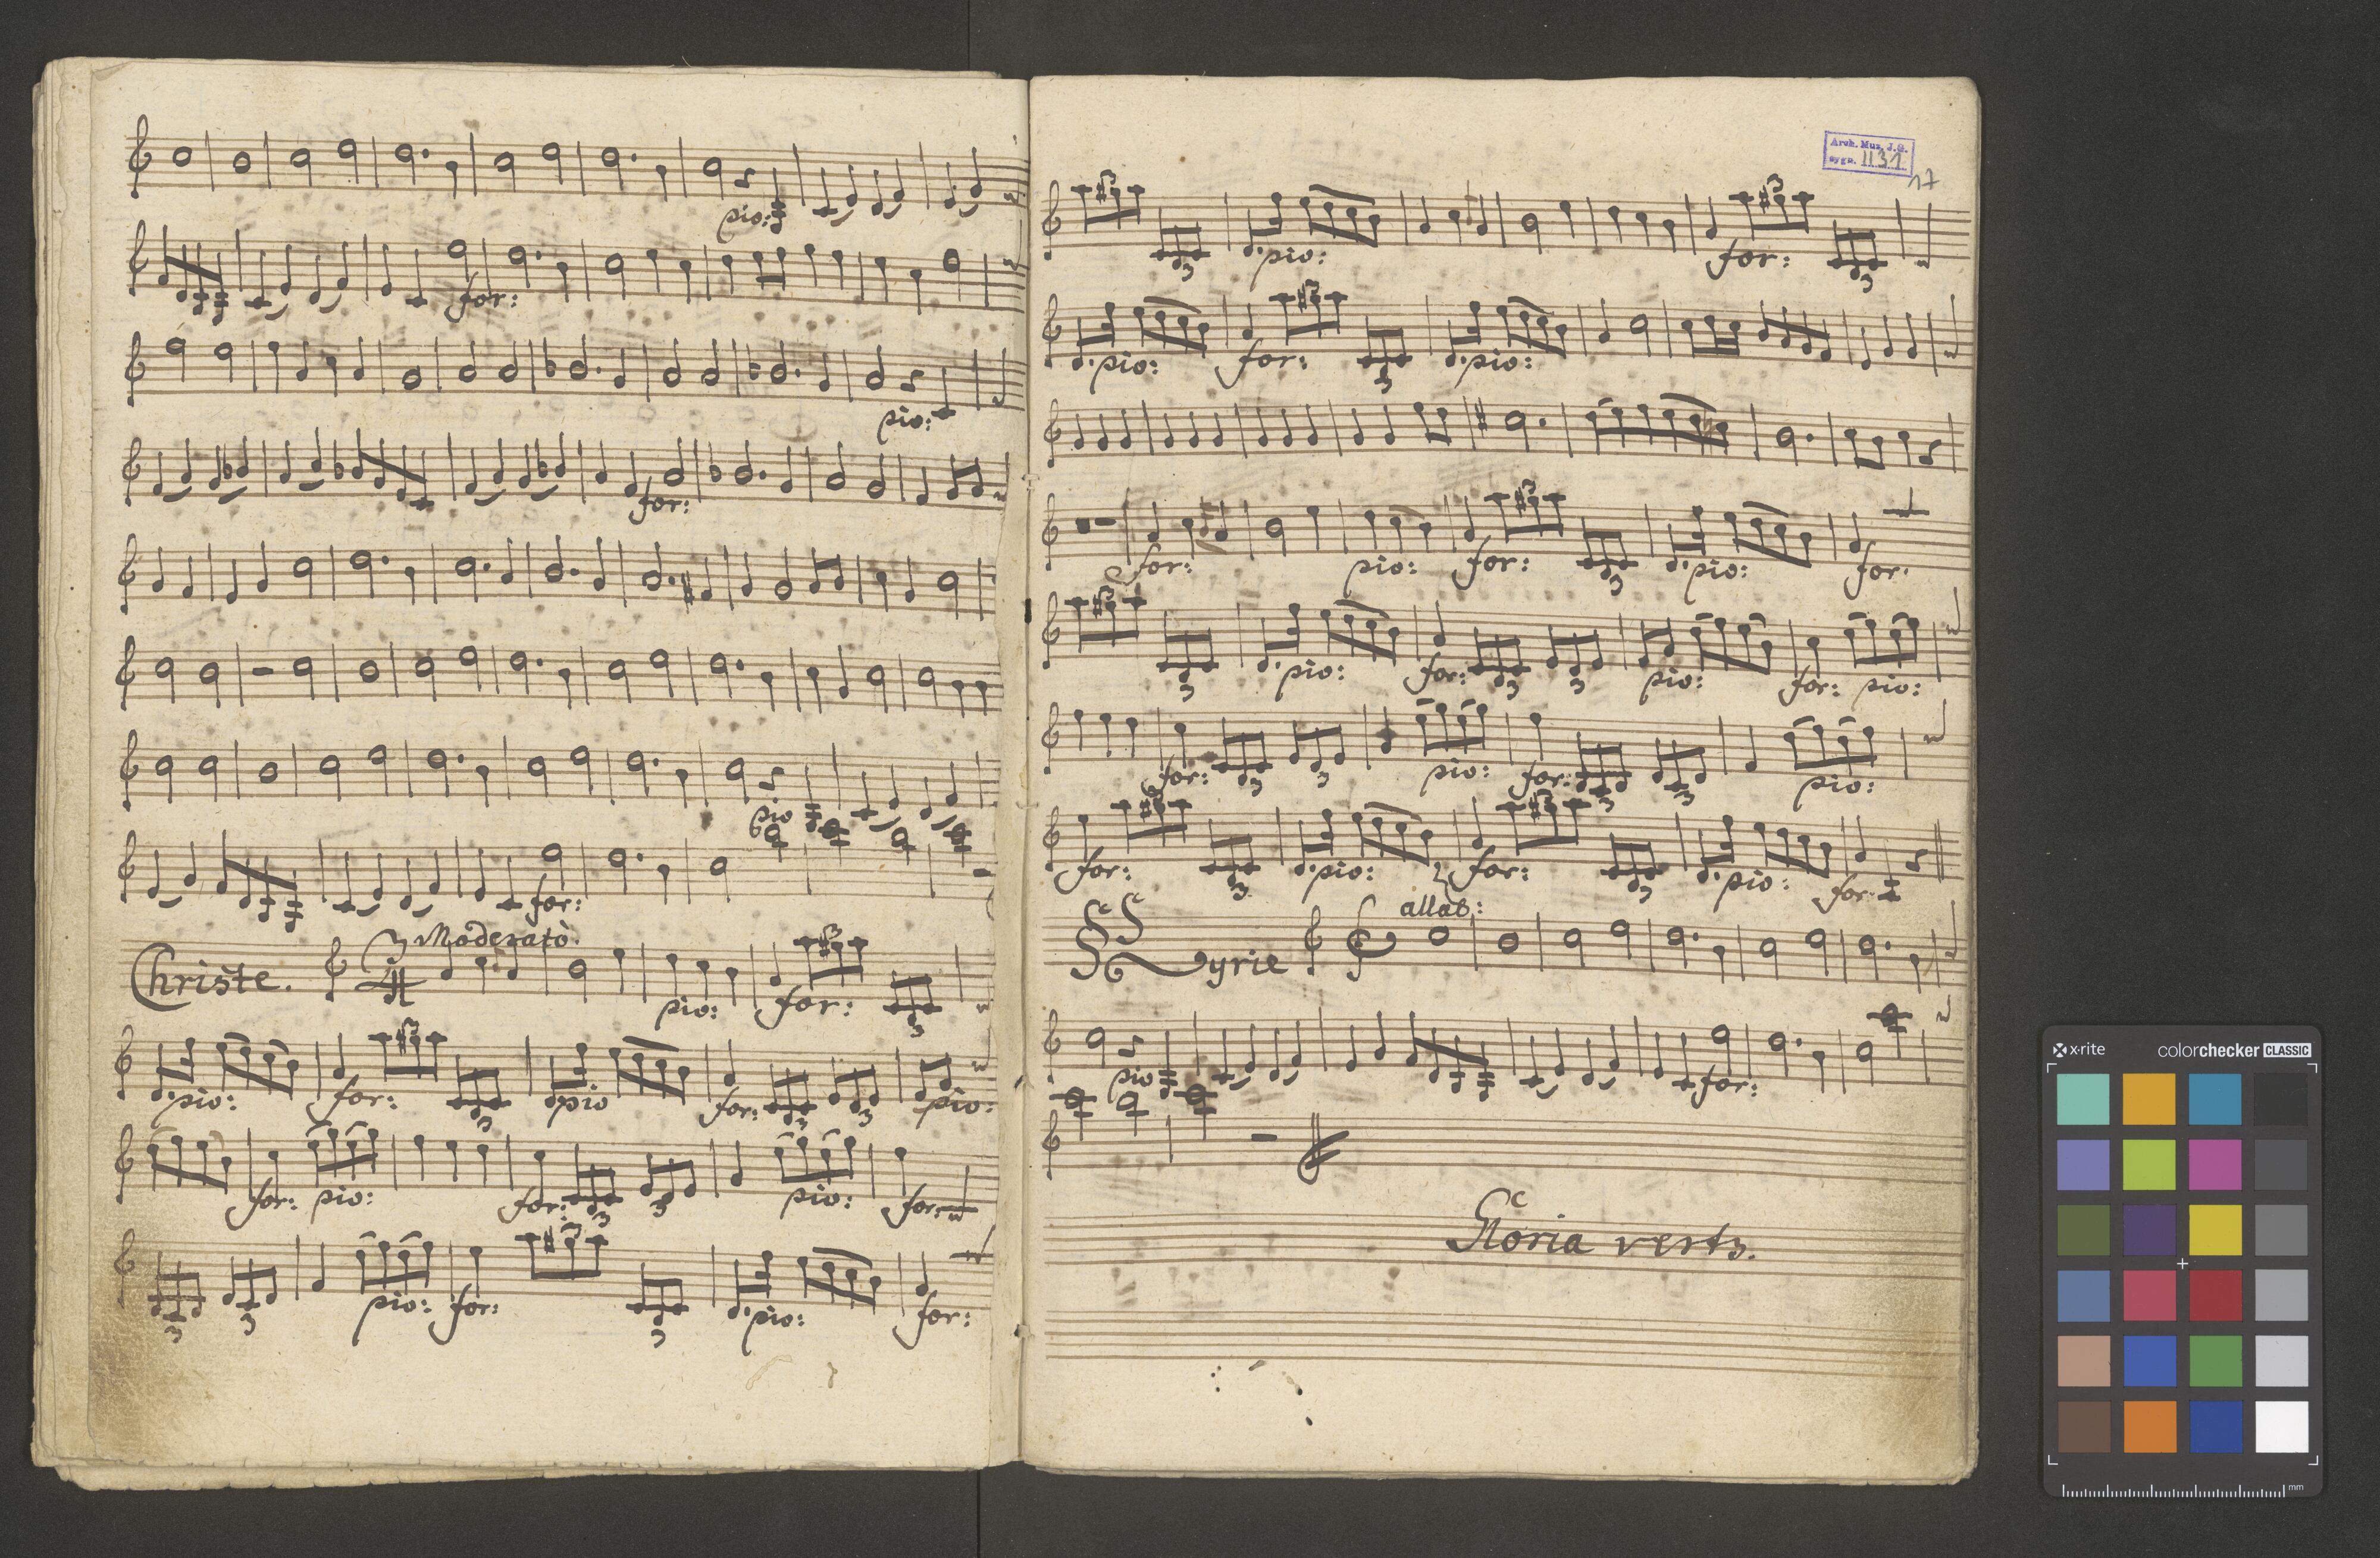 pio:
for:
pio:
for:
pio
for:
Christe. 3/4 Moderatò.
pio: for: 3 3
pio: for: 3 3 pio for: 3 3 pio:
for: pio: for: 3 3 pio: for:
3 3 pio: for: 3 3 pio: for:
Arch. Muz. J.G.
sygn. II 31.
17
3 3 pio: for: 3 3
pio: for: 3 3 pio:
for: pio: for: 3 3 pio: for.
3 3 pio: for: 3 3 pio: for: pio:
for: 3 3 pio: for: 3 3 pio:
for: 3 3 pio: for: 3 3 pio: for.
Kyrie allab:
pio for:
Gloria verts.
x·rite colorchecker CLASSIC
mm